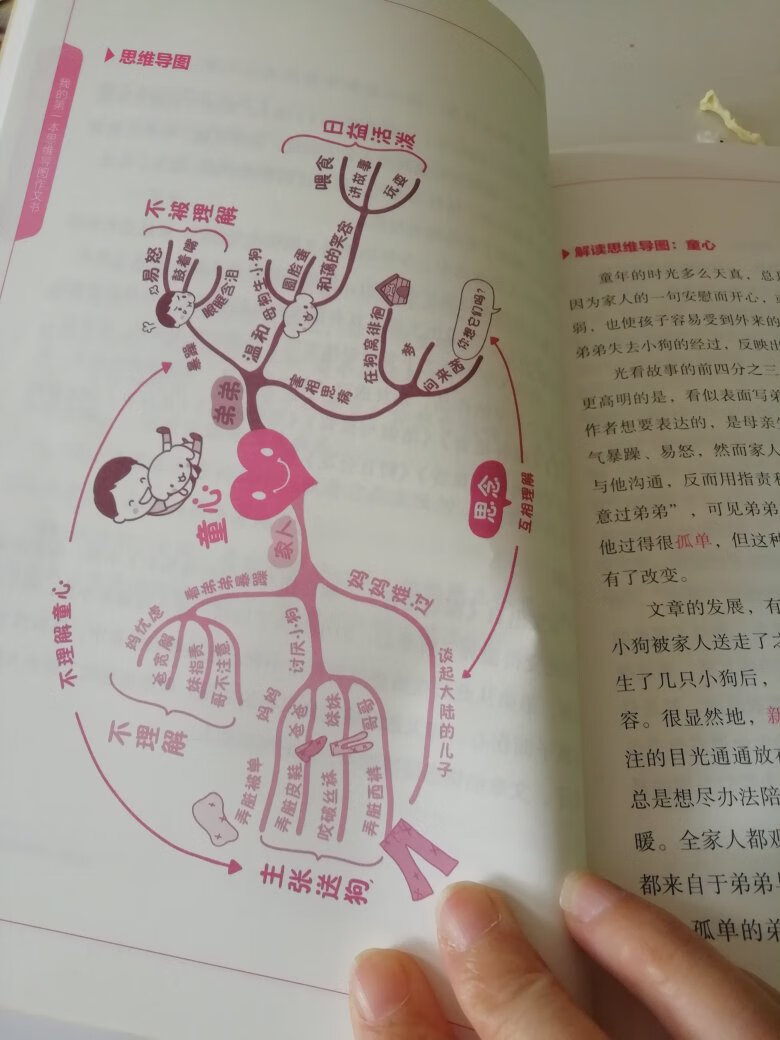 我的第一本思维导图作文书
思维导图
童心
弟弟
暴躁
易怒
鼓着嘴
眼眶含泪
不被理解
温和
母狗生小狗
圆脸蛋
和蔼的笑容
喂食
讲故事
玩耍
日益活泼
害相思病
在狗窝徘徊
梦
问来酱
你想它们吗？
思念
互相理解
家人
看弟弟暴躁
妈忧虑
爸宽解
妹指责
哥不注意
不理解
不理解童心
讨厌小狗
妈妈
弄脏被单
爸爸
弄脏皮鞋
妹妹
咬破丝袜
哥哥
弄脏西裤
主张送狗
妈妈难过
念起大陆的儿子
解读思维导图：童心
童年的时光多么天真，总
因为家人的一句安慰而开心，
弱，也使孩子容易受到外来的
弟弟失去小狗的经过，反映出
光看故事的前四分之三
更高明的是，看似表面写弟
作者想要表达的，是母亲
气暴躁、易怒，然而家人
与他沟通，反而用指责
意过弟弟”，可见弟弟
他过得很孤单，但这种
有了改变。
文章的发展，有
小狗被家人送走了
生了几只小狗后，
容。很显然地，新
注的目光通通放
总是想尽办法陪
暖。全家人都
都来自于弟弟
孤单的弟